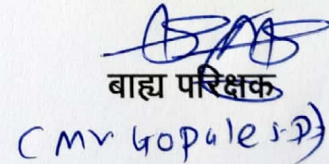 बाह्य परिक्षक
(Mr Gopale S.D)